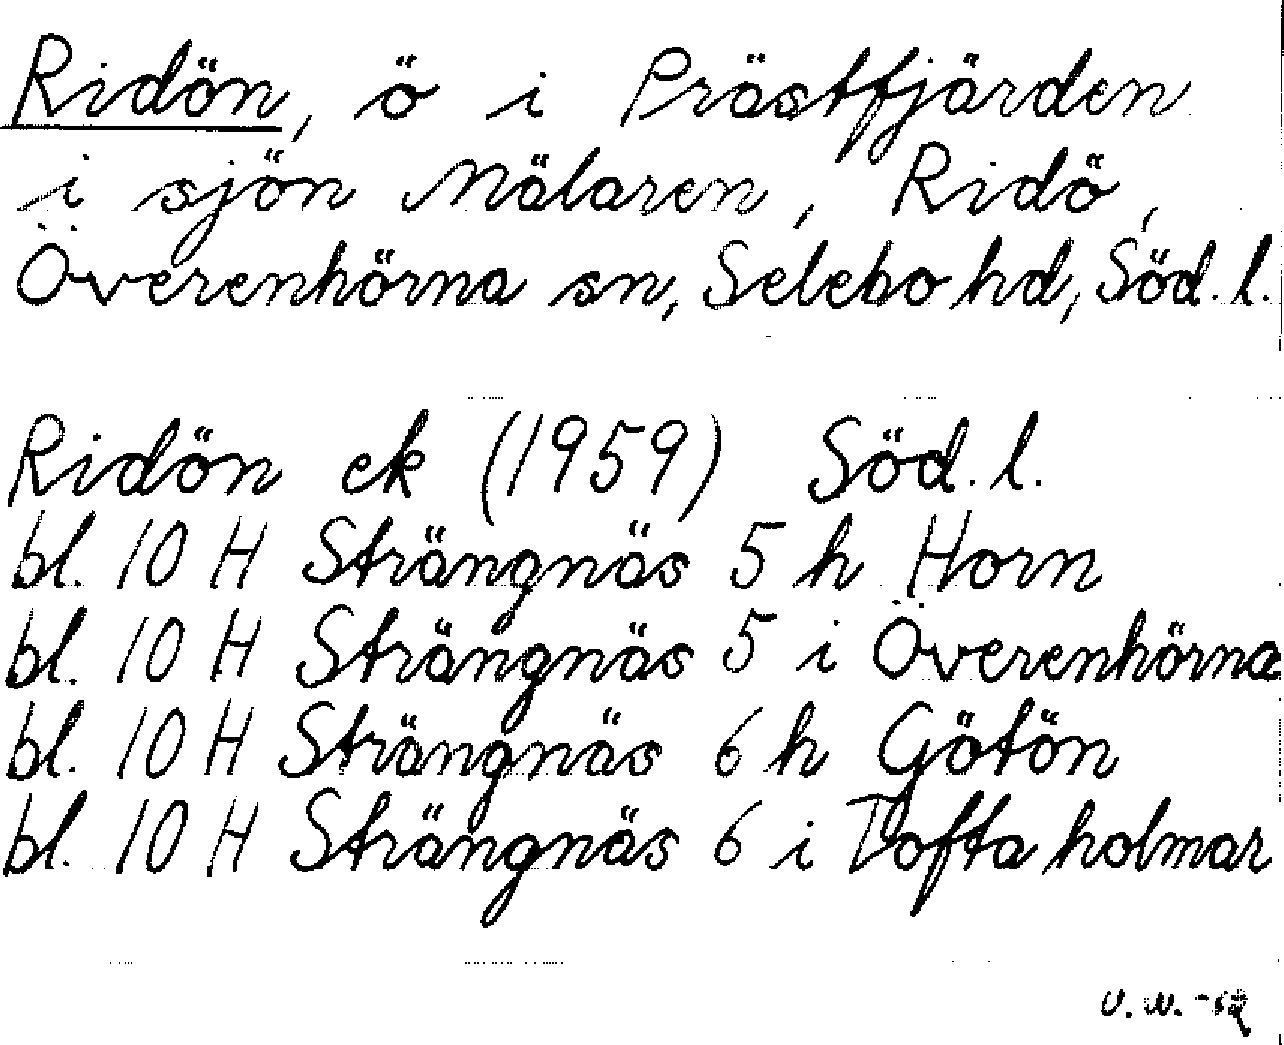 Ridön, ö i Prästfjärden
i sjön Mälaren, Ridö,
Överenhörna sn, Selebo hd, Söd. l.
Ridön ek (1959) Söd. l.
bl. 10 H Strängnäs 5 h Horn
bl. 10 H Strängnäs 5 i Överenhörna
bl. 10 H Strängnäs 6 h Götön
bl. 10 H Strängnäs 6 i Toftaholmar